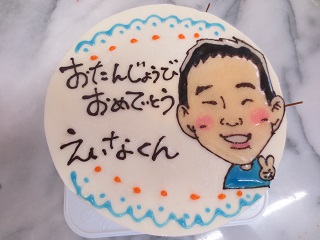 おたんじょうび
おめでとう
えいなくん